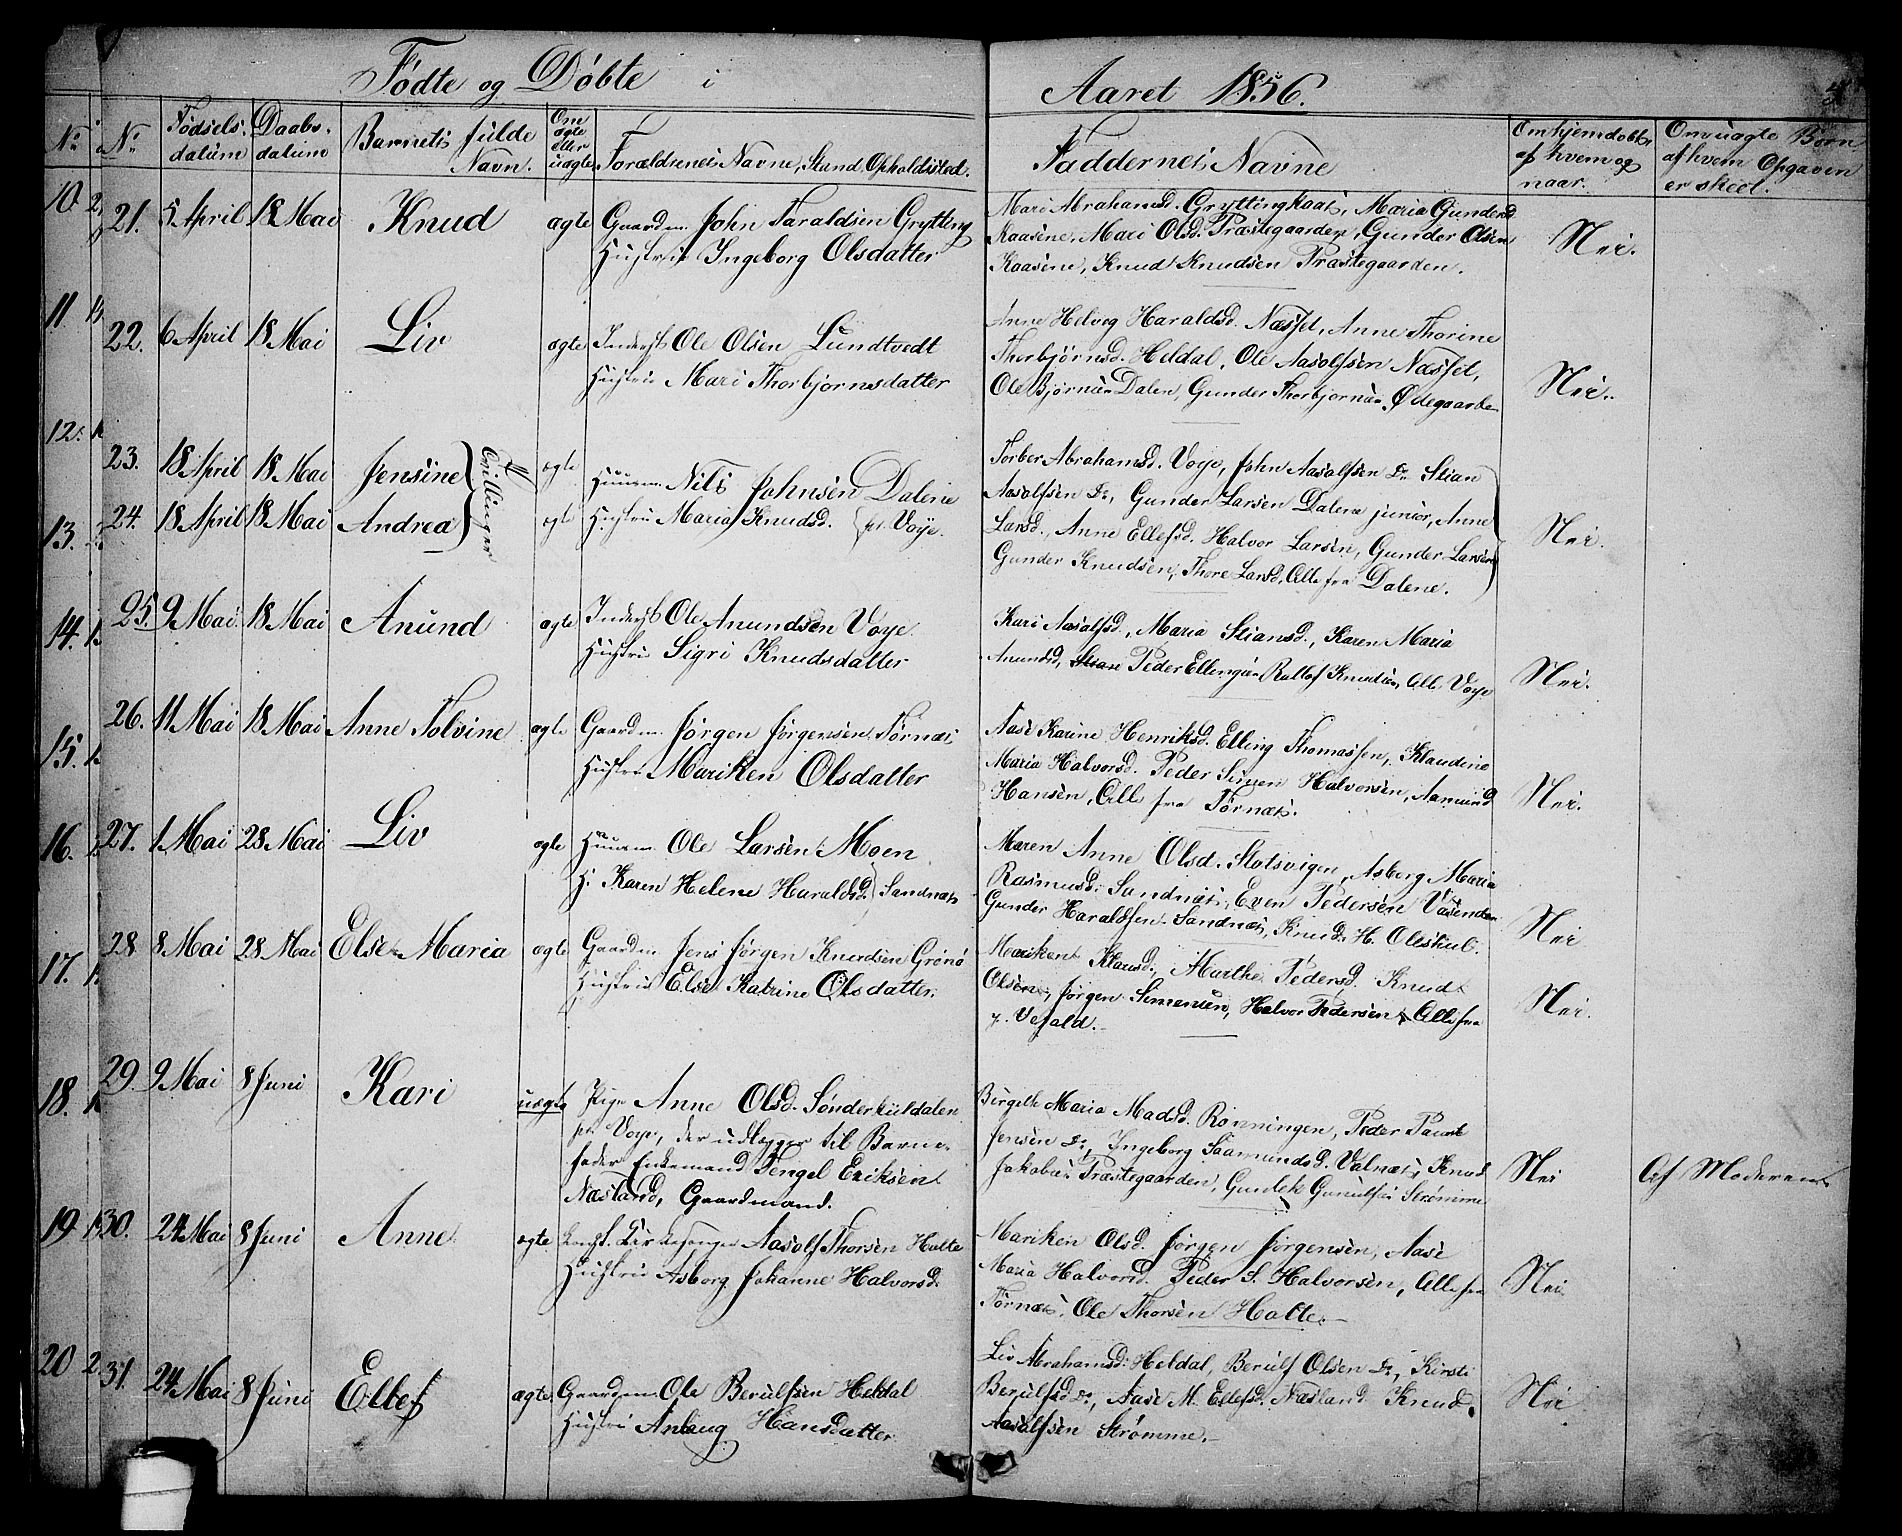 Fødte og Døbte i Aaret 1856.
3
No
No
Fødsels-
datum
Daabs-
datum
Barnets fulde
Navn.
Om
ægte
eller
uægte
Forældrenes Navne, Stand, Opholdssted.
Faddernes Navne
Om hjemdøbt,
af hvem og
naar.
Om uægte Børn
af hvem Opgaven
er skeet.
10.
21. 5 April 18 Mai Knud ægte Gaardm. John Taraldsen Grytting
Hustrue Ingeborg Olsdatter
Mari Abrahamsd. Gryttingkaas, Maria Gundersd.
Kaasene, Mari Olsd. Præstegaarden, Gunder Olsen
Kaasene, Knud Knudsen Præstegaarden.
Nei.
11
22. 6 April 18 Mai Liv ægte Inderst Ole Olsen Lundtvedt
Hustrue Mari Thorbjørnsdatter
Anne Helvig Haraldsd. Næsset, Anne Thorine
Thorbjørnsd. Heldal, Ole Aasolfsen Næsset,
Ole Bjørnsen Dalen, Gunder Thorbjørnsen Ødegaarden
Nei.
12.
23. 18 April 18 Mai Jensine ægte
24. 18 April 18 Mai Andrea ægte
Tvillinger
Huusm. Nils Johnsen Dalene
Hustrue Maria Knudsd. pt. Voje.
Torber Abrahamsd. Voje, John Aasolfsen Do Stian
Aasolfsen Do, Gunder Larsen Dalene junior, Anne
Larsd., Anne Ellefsd. Halvor Larsen, Gunder Larsen
Gunder Knudsen, Thore Larsd. Alle fra Dalene.
Nei.
13.
14.
25. 9 Mai 18 Mai Anund ægte Inderst Ole Anundsen Voje.
Hustrue Sigri Knudsdatter
Kari Aasolfsd., Maria Stiansd., Karen Maria
Anundsd, Peder Ellingsen Rollof Knudsen, Alle Voje
Nei.
15.
26. 11 Mai 18 Mai Anne Tolvine ægte Gaardm. Jørgen Jørgensen Tørnæs
Hustrue Mariken Olsdatter
Aase Karine Henriksd. Elling Thomassen, Klaudine
Maria Halvorsd. Peder Simen Halvorsen, Aamund
Hansen, Alle fra Tørnæs.
Nei.
16.
27. 1 Mai 28 Mai Liv ægte Huusm. Ole Larsen Moen
H. Karen Helene Haraldsd. Sandnæs
Maren Anne Olsd. Slotsvigen, Asborg Maria
Rasmusd. Sandnæs, Even Pedersen Vasenden
Gunder Haraldsen Sandnæs, Knud H. Oleskul.
Nei
17.
28 8 Mai 28 Mai Else Maria ægte Gaardm. Jens Jørgen Knudsen Grønø
Hustrue Else Katrine Olsdatter.
Mariken Klausd. Marthe Pedersd. Knud
Olsen, Jørgen Simensen, Halvor Pedersen Alle fra
y. Vefald.
Nei.
18.
29. 9 Mai 8 Juni Kari uægte Pige Anne Olsd. Sønderkuldalen
pt. Voje, der udlægger til Barne-
fader Enkemand Tengel Eriksen
Næsland, Gaardmand.
Birgethe Maria Madsd. Rønningen, Peder Paust
Jensen Do, Ingeborg Saamundsd. Valnæs, Knud
Jakobsen Præstegaarden, Gundek Gunulfsen Strømme
Nei
Af Moderen.
19
30. 24 Mai 8 Juni Anne ægte Konst. Kirkesanger Aasolf Thorsen Holte
Hustrue Asborg Johanne Halvorsd.
Mariken Olsd. Jørgen Jørgensen, Aase
Maria Halvorsd. Peder S. Halvorsen, Alle fra
Tørnæs, Ole Thorsen Holte.
Nei.
20
31. 24 Mai 8 Juni Ellef ægte. Gaardm. Ole Berulfsen Heldal
Hustrue Anlaug Hansdatter
Liv Abrahamsd. Heldal, Berulf Olsen Do, Kirsti
Berulfsd. Do, Aase M. Ellefsd. Næsland Knud
Aasolfsen Strømme.
Nei